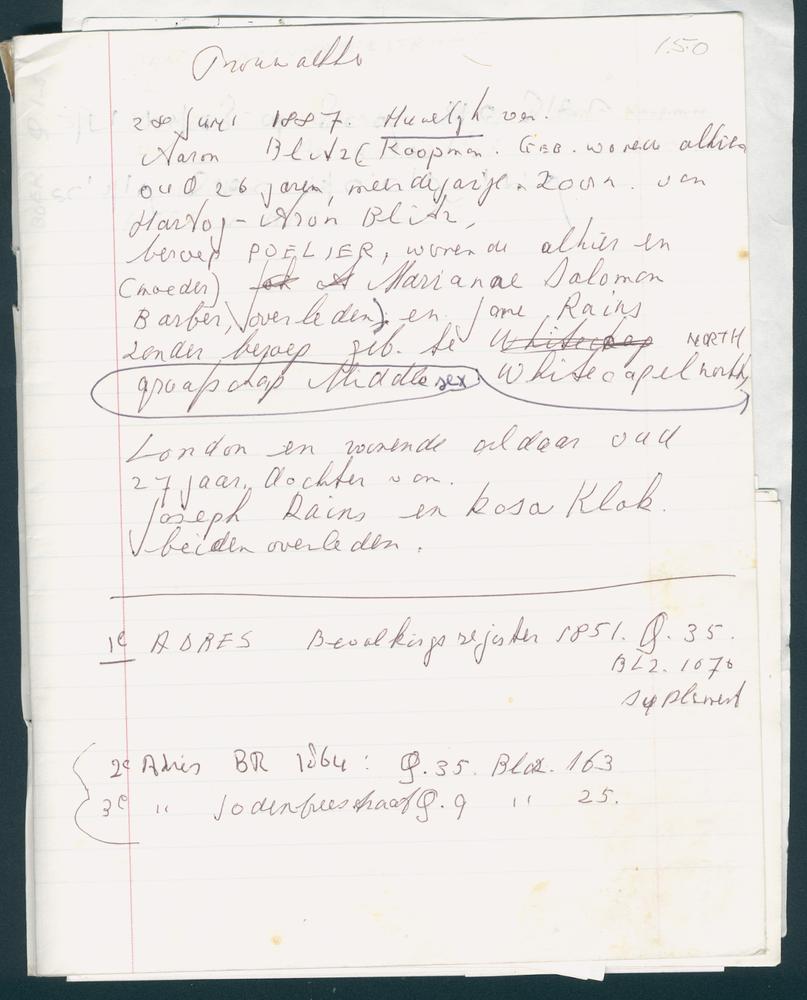 Trouwakte 150
28 Juni 1887. Huwelijk van.
Aaron Blitz (Koopman. Geb. wonend alhier
oud 26 jaren, meerderjarige. Zoon. van
Hartog-Aron Blitz,
beroep POELIER, wonende alhier en
(moeder) Marianne Salomon
Barber, (overleden) en Jane Rains
zonder beroep geb. te Whitechap NORTH
graafschap Middlesex. Whitecapel north,
London en wonende aldaar oud
27 jaar. dochter van.
Joseph Rains en Rosa Klok.
beiden overleden.
1e ADRES Bevolkingsregister 1851. Q. 35.
BLZ. 1070
suplement
2e Adres BR 1864: Q.35. Bladz. 163
3e " Jodenbreestraat Q.9 " 25.